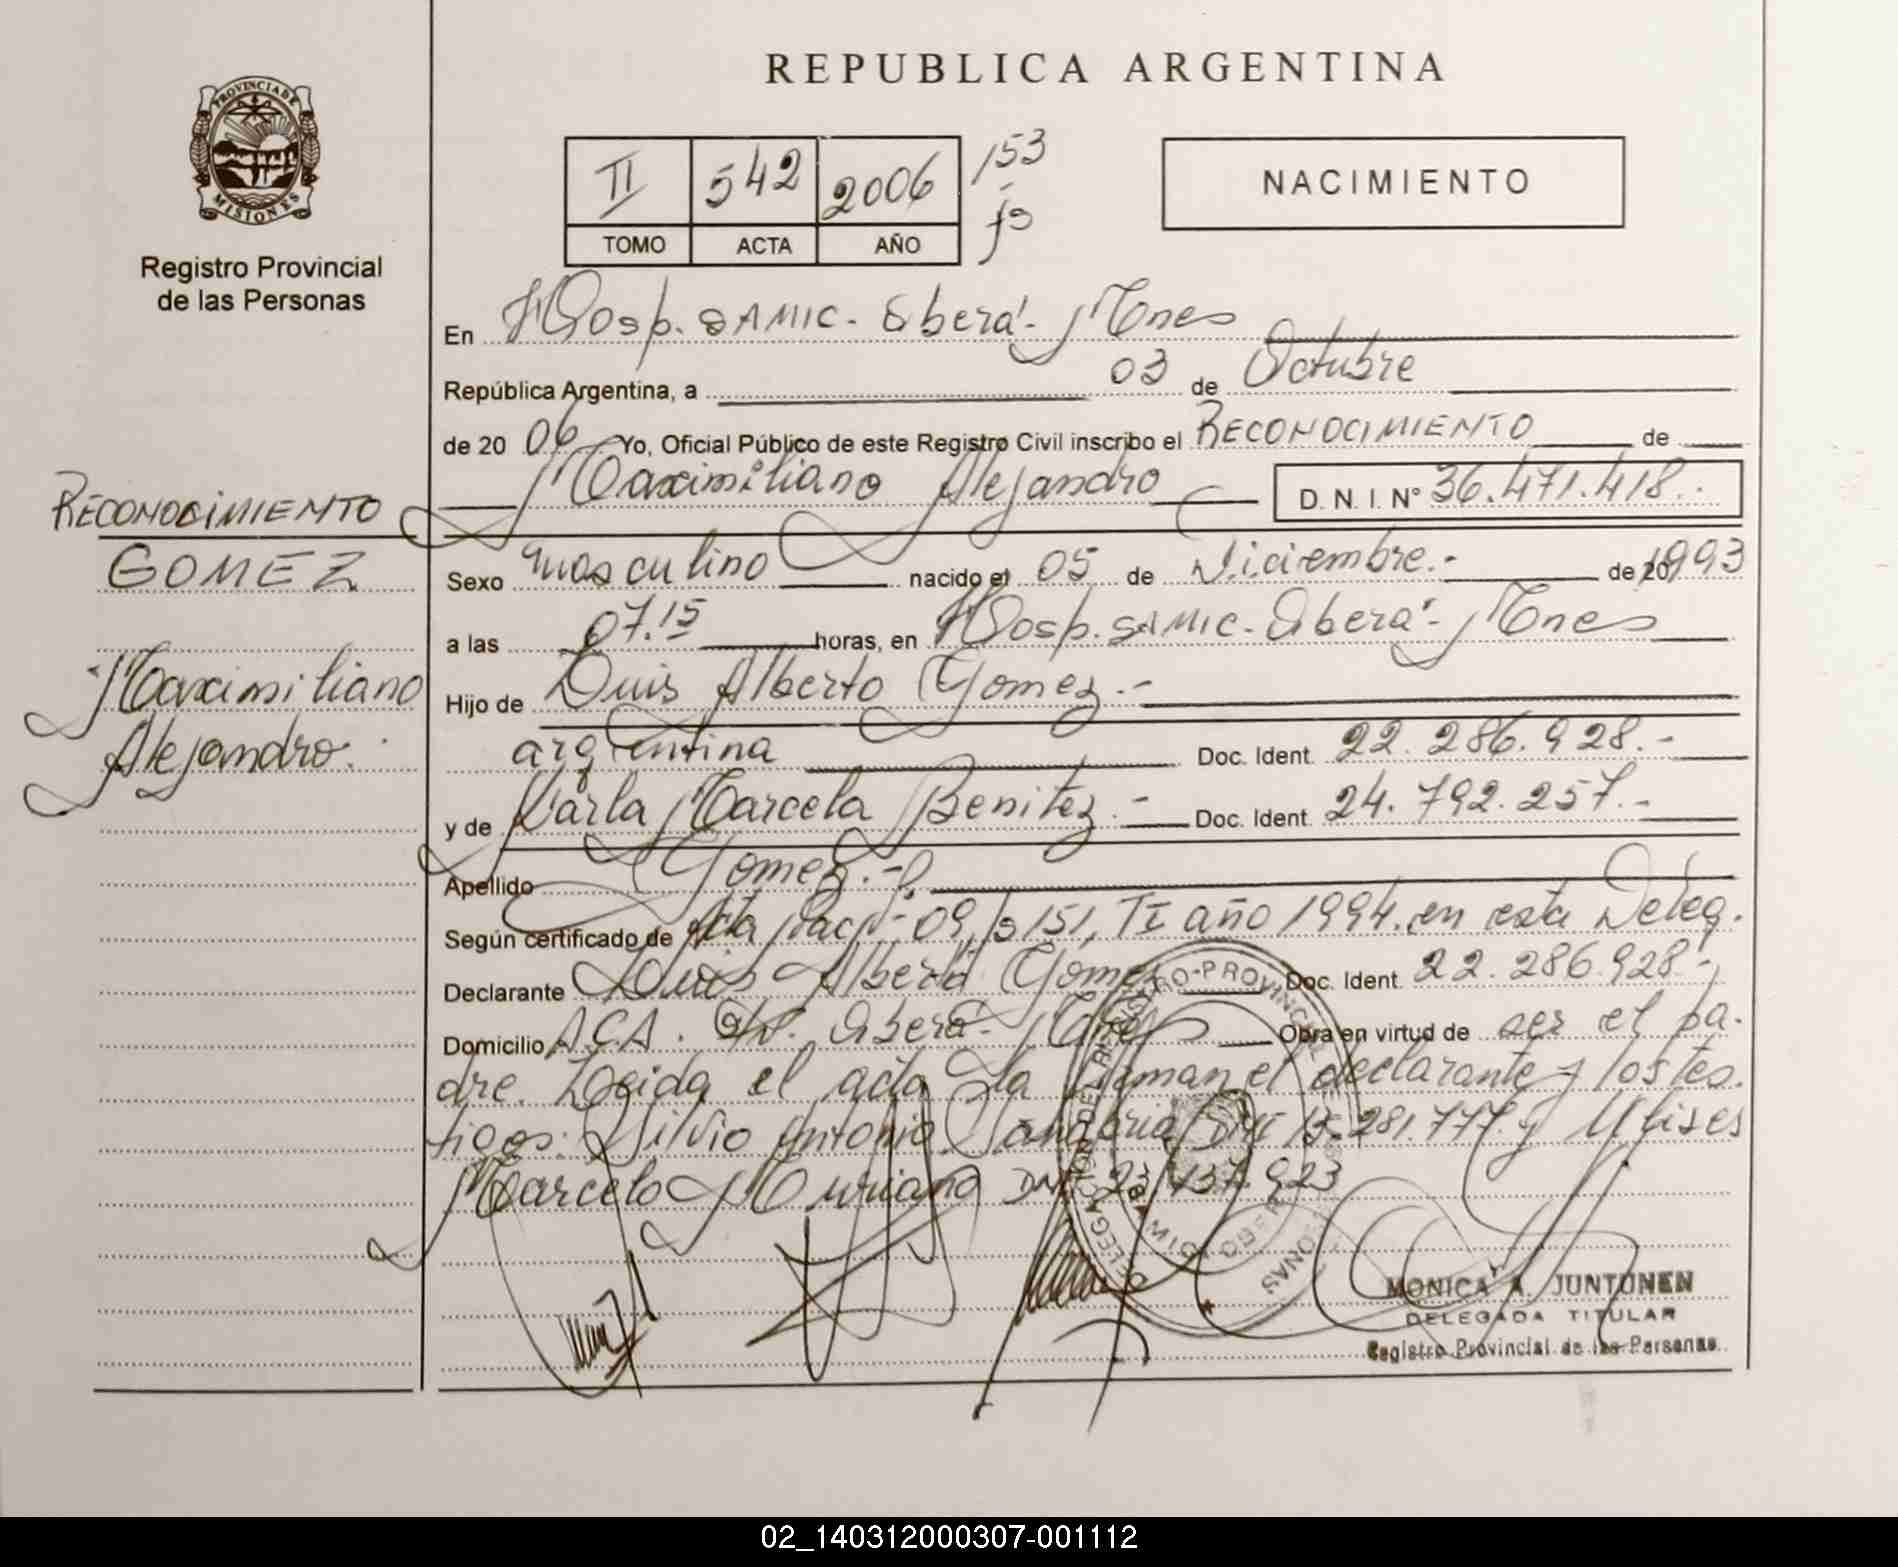 REPUBLICA ARGENTINA
PROVINCIA DE MISIONES
Registro Provincial
de las Personas
II 542 2006 153
TOMO ACTA AÑO
NACIMIENTO
En Hosp. SAMIC - Oberá - Mnes
República Argentina, a 03 de Octubre
de 20 06 Yo, Oficial Público de este Registro Civil inscribo el RECONOCIMIENTO de
Maximiliano Alejandro D. N. I. Nº 36.471.418.
RECONOCIMIENTO
GOMEZ
Maximiliano
Alejandro.
Sexo masculino nacido el 05 de Diciembre.- de 1993
a las 07.15 horas, en Hosp. SAMIC - Oberá - Mnes
Hijo de Luis Alberto Gomez.-
argentina Doc. Ident. 22.286.928.-
y de Karla Marcela Benitez.- Doc. Ident. 24.792.257.-
Apellido Gomez.-
Según certificado de Acta 09, 151, TI año 1994. en esta Deleg.
Declarante Luis Alberto Gomez Doc. Ident. 22.286.928.-
Domicilio ACA. Oberá - Mnes Obra en virtud de ser el pa-
dre. Leida el acta la firman el declarante y los tes-
tigos: Silvio Antonio Sanabria DNI 13.281.777 y Ulises
Marcelo Muriano DNI 23.137.923
REGISTRO PROVINCIAL DE LAS PERSONAS
MONICA A. JUNTUNEN
DELEGADA TITULAR
Registro Provincial de las Personas
02_140312000307-001112